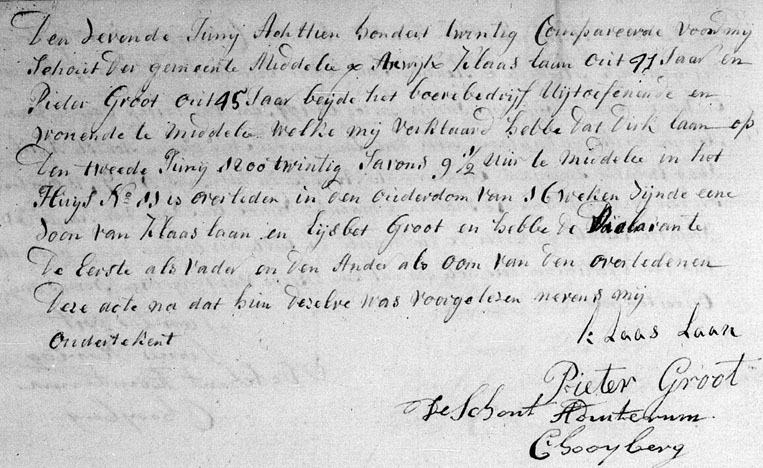 Den Zevende Junij Achttien hondert twintig Compareerde voor mij
Schout der gemeente Middelie & Klaas laan out 41 Jaar en
Pieter Groot out 45 Jaar beijde het boerebedrijf Uijtoefenende en
wonende te Middelie welke mij verklaard hebbe dat Dirk laan op
Den tweede Junij 1800 twintig Savons 9 1/2 Uur te Middelie in het
Huijs No 11 is overleden in den ouderdom van 16 weken Zijnde eene
Zoon van Klaas laan en Lijsbet Groot en hebbe de Declarante
De Eerste als Vader en den Ander als Oom van den overledenen
Deze acte na dat hun dezelve was voorgelezen nevens mij
Ondertekent
Klaas Laan
Pieter Groot
De Schout
C hooyberg